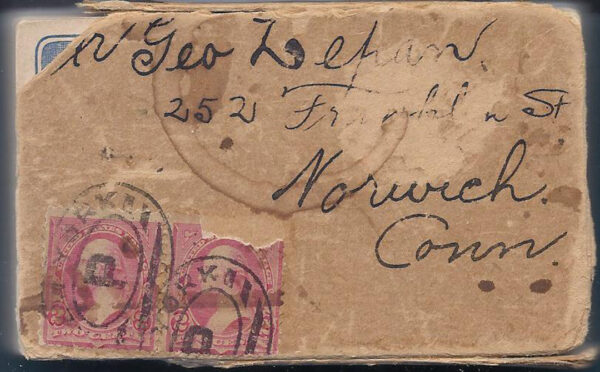 Mr Geo Lepan
252 Franklin St
Norwich.
Conn.
P
P